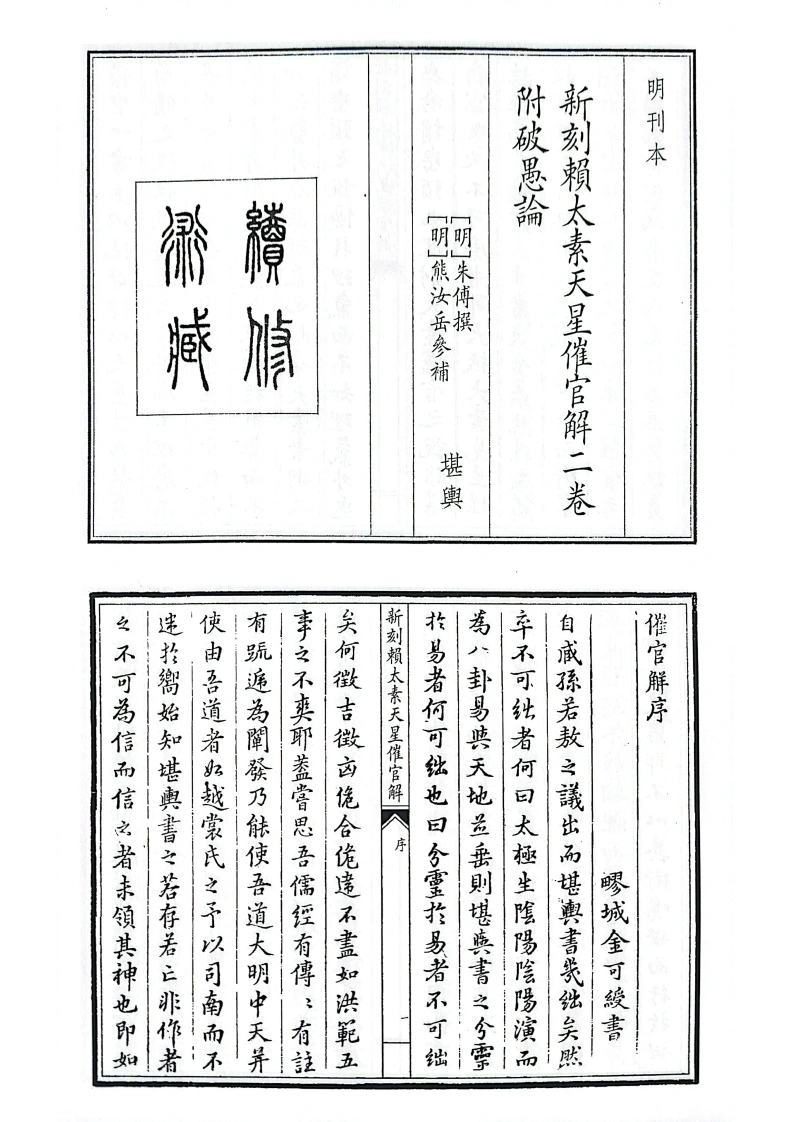 明刊本
新刻賴太素天星催官解二卷
附破愚論
［明］朱傅撰
［明］熊汝岳參補
堪輿
續修
術藏
催官解序
酆城金可綬書
自咸孫若敖之議出而堪輿書幾絀矣然
卒不可絀者何曰太極生陰陽陰陽演而
為八卦易與天地並垂則堪輿書之分靈
扵易者何可絀也曰分靈扵易者不可絀
新刻賴太素天星催官解
序
一
矣何徵吉徵凶俛合俛違不盡如洪範五
事之不爽耶葢嘗思吾儒經有傳〻有註
有䟽遞為闡發乃能使吾道大明中天并
使由吾道者如越裳氏之予以司南而不
迷扵嚮始知堪輿書之若存若亡非作者
之不可為信而信之者未領其神也即如